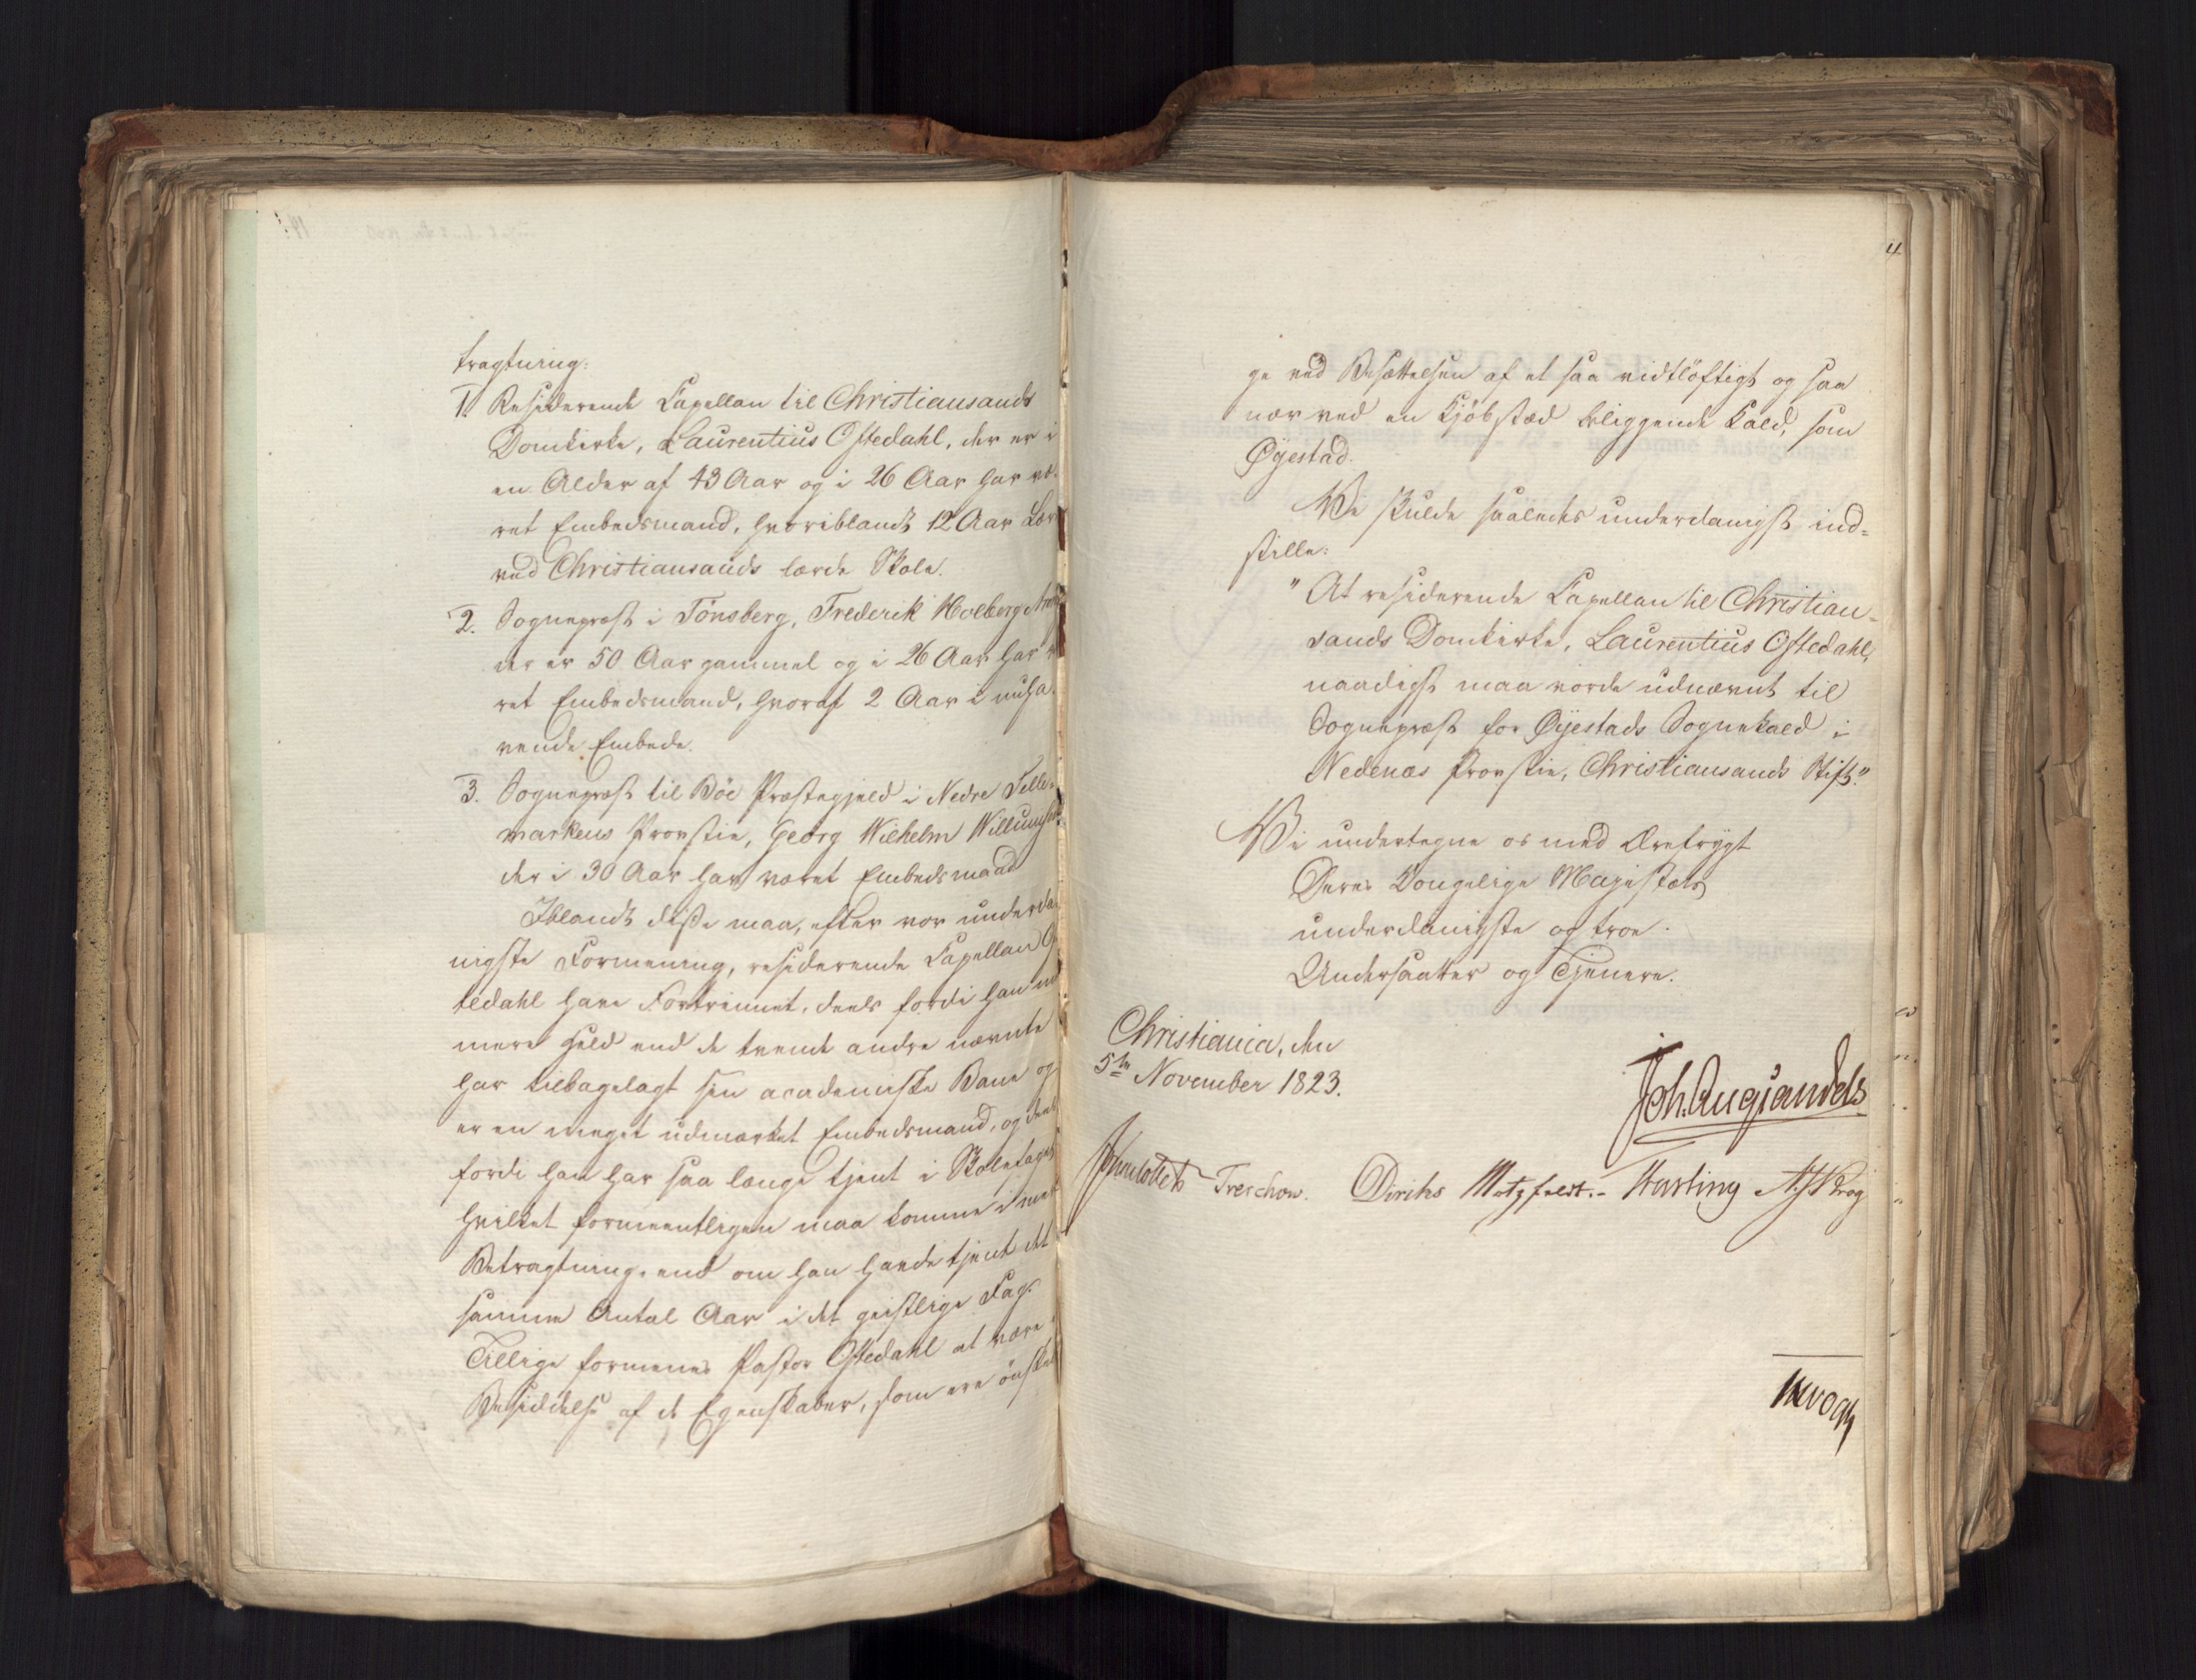 tragtning:
1. Residerende Capellan til Christiansands
Domkirke, Laurentius Oftedahl, der er i
en Alder af 43 Aar og i 26 Aar har væ-
ret Embedsmand, hvoriblandt 12 Aar Lær
ved Christiansands lærde Skole.
2. Sognepræst i Tønsberg, Frederik Holberg
der er 50 Aar gammel og i 26 Aar har
ret Embedsmand, hvoraf 2 Aar i nuha-
vende Embede.
3. Sognepræst til Böe Præstegjeld i Nedre Telle-
markens Provstie, Georg Wilhelm Willumsen
der i 30 Aar har været Embedsmand
Iblandt disse maa, efter vor underda-
nigste Formening, residerende Capellan Of
tedahl have Fortrinnet, deels fordi han med
mere Held end de tvende andre nævnte
har tilbagelagt sin academiske Bane og
er en meget udmærket Embedsmand, og deels
fordi han har saa længe tjent i Skolefaget,
hvilket formeentligen maa komme i mere
Betragtning, end om han havde tjent det
samme Antal Aar i det geistlige Fag.
Tillige formenes Pastor Oftedahl at være i
Besiddelse af de Egenskaber, som ere önskeli
4
ge ved Besættelsen af et saa vidtlöftigt og saa
nær ved en Kjöbstæd beliggende Kald, som
Øyestad.
Vi skulde saaledes underdanigst ind-
stille:
"At residerende Capellan til Christian-
sands Domkirke, Laurentius Oftedahl,
naadigst maa vorde udnævnt til
Sognepræst for Øyestads Sognekald i
Nedenæs Provstie, Christiansands Stift."
Vi undertegne os med Ærefrygt
Deres Kongelige Majestæts
underdanigste og troe
Undersaatter og Tjenere.
Christiania, den
5te November 1823.
Joh. Aug. Sandels
Sommerhielm Treschow. Diriks Motzfeldt.- Hasting
Krog
Vogt